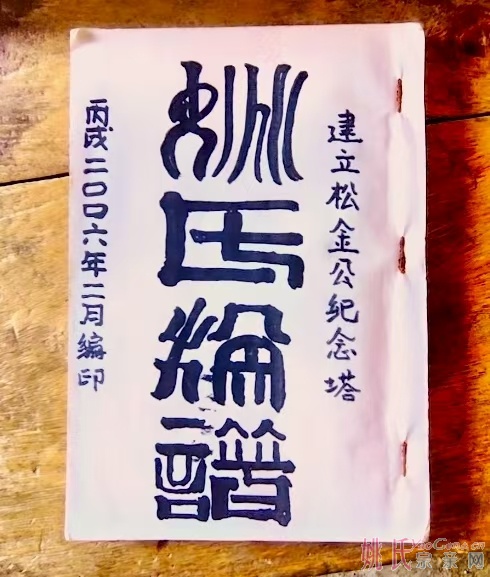 建立松金公紀念塔
姚氏綸譜
丙戌二〇〇六年二月編印
姚氏宗亲网